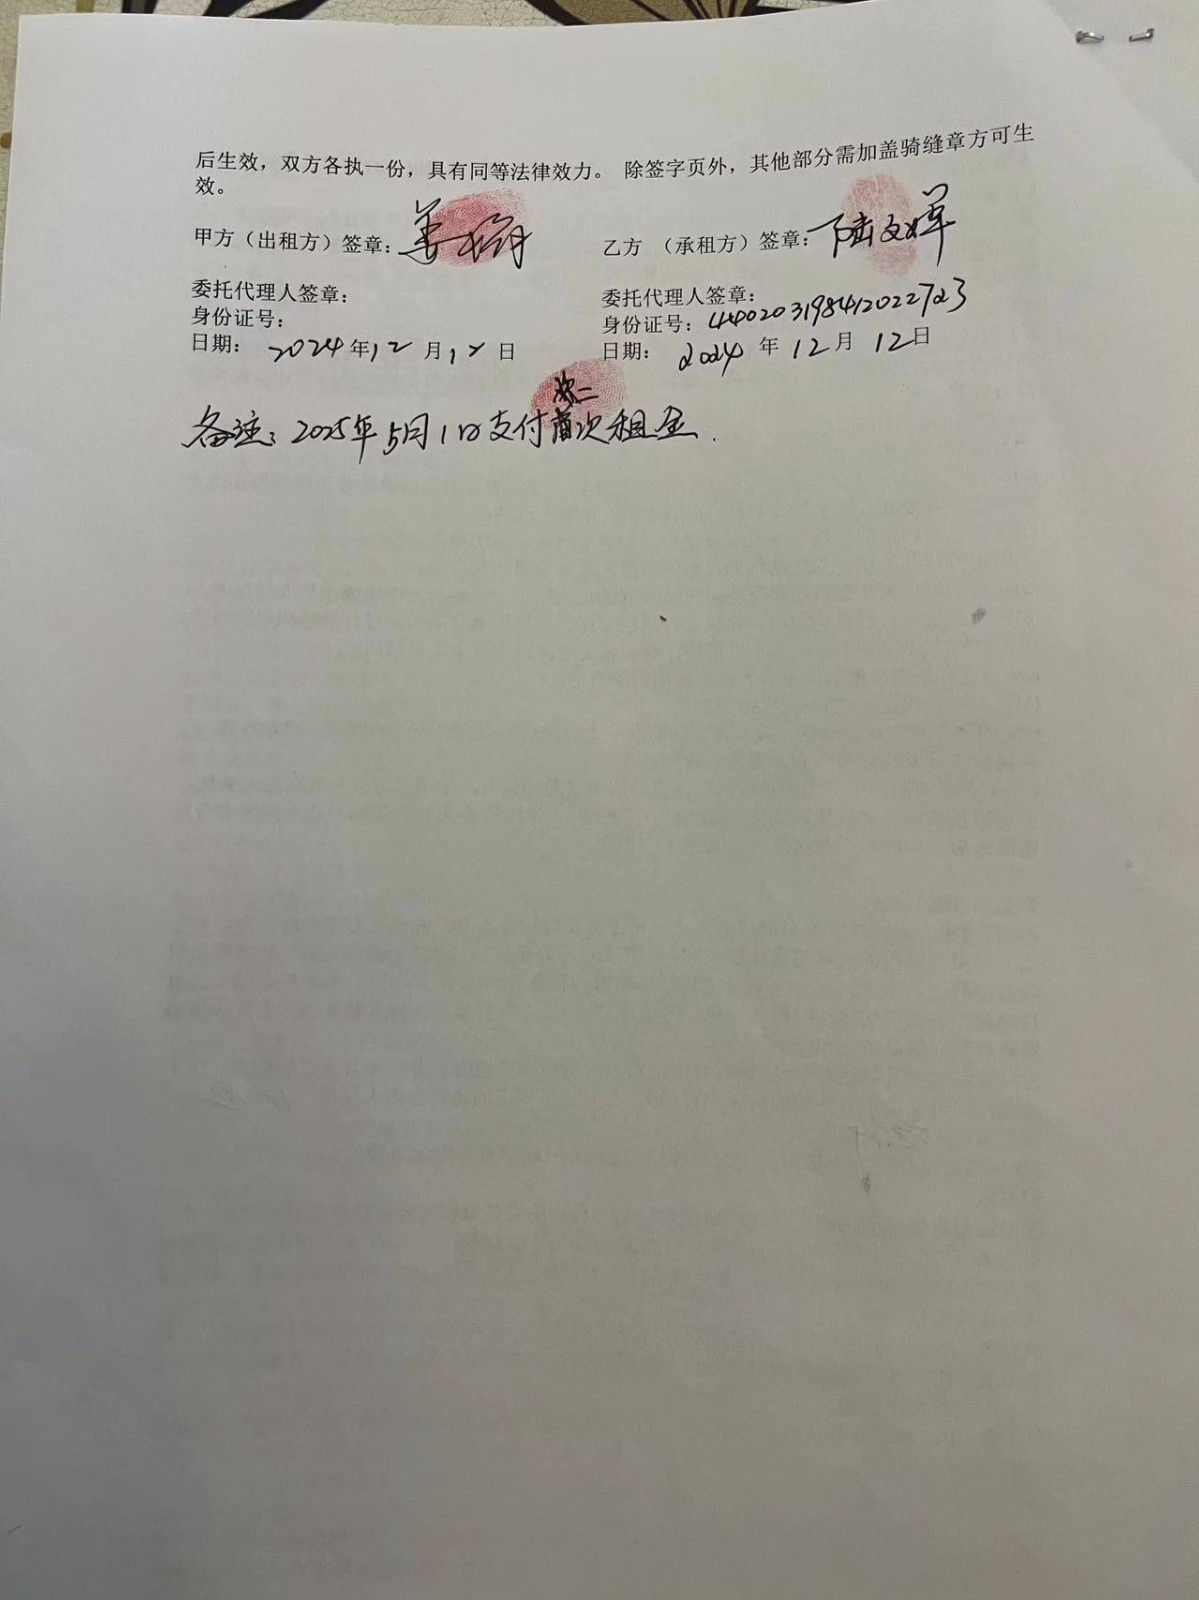 后生效，双方各执一份，具有同等法律效力。 除签字页外，其他部分需加盖骑缝章方可生
效。
甲方（出租方）签章：姜
乙方 （承租方）签章：陆文婵
委托代理人签章：
委托代理人签章：
身份证号：
身份证号：440203198412022723
日期： 2024年12月12日
日期： 2024年12月12日
第二
备注：2025年5月1日支付首次租金.